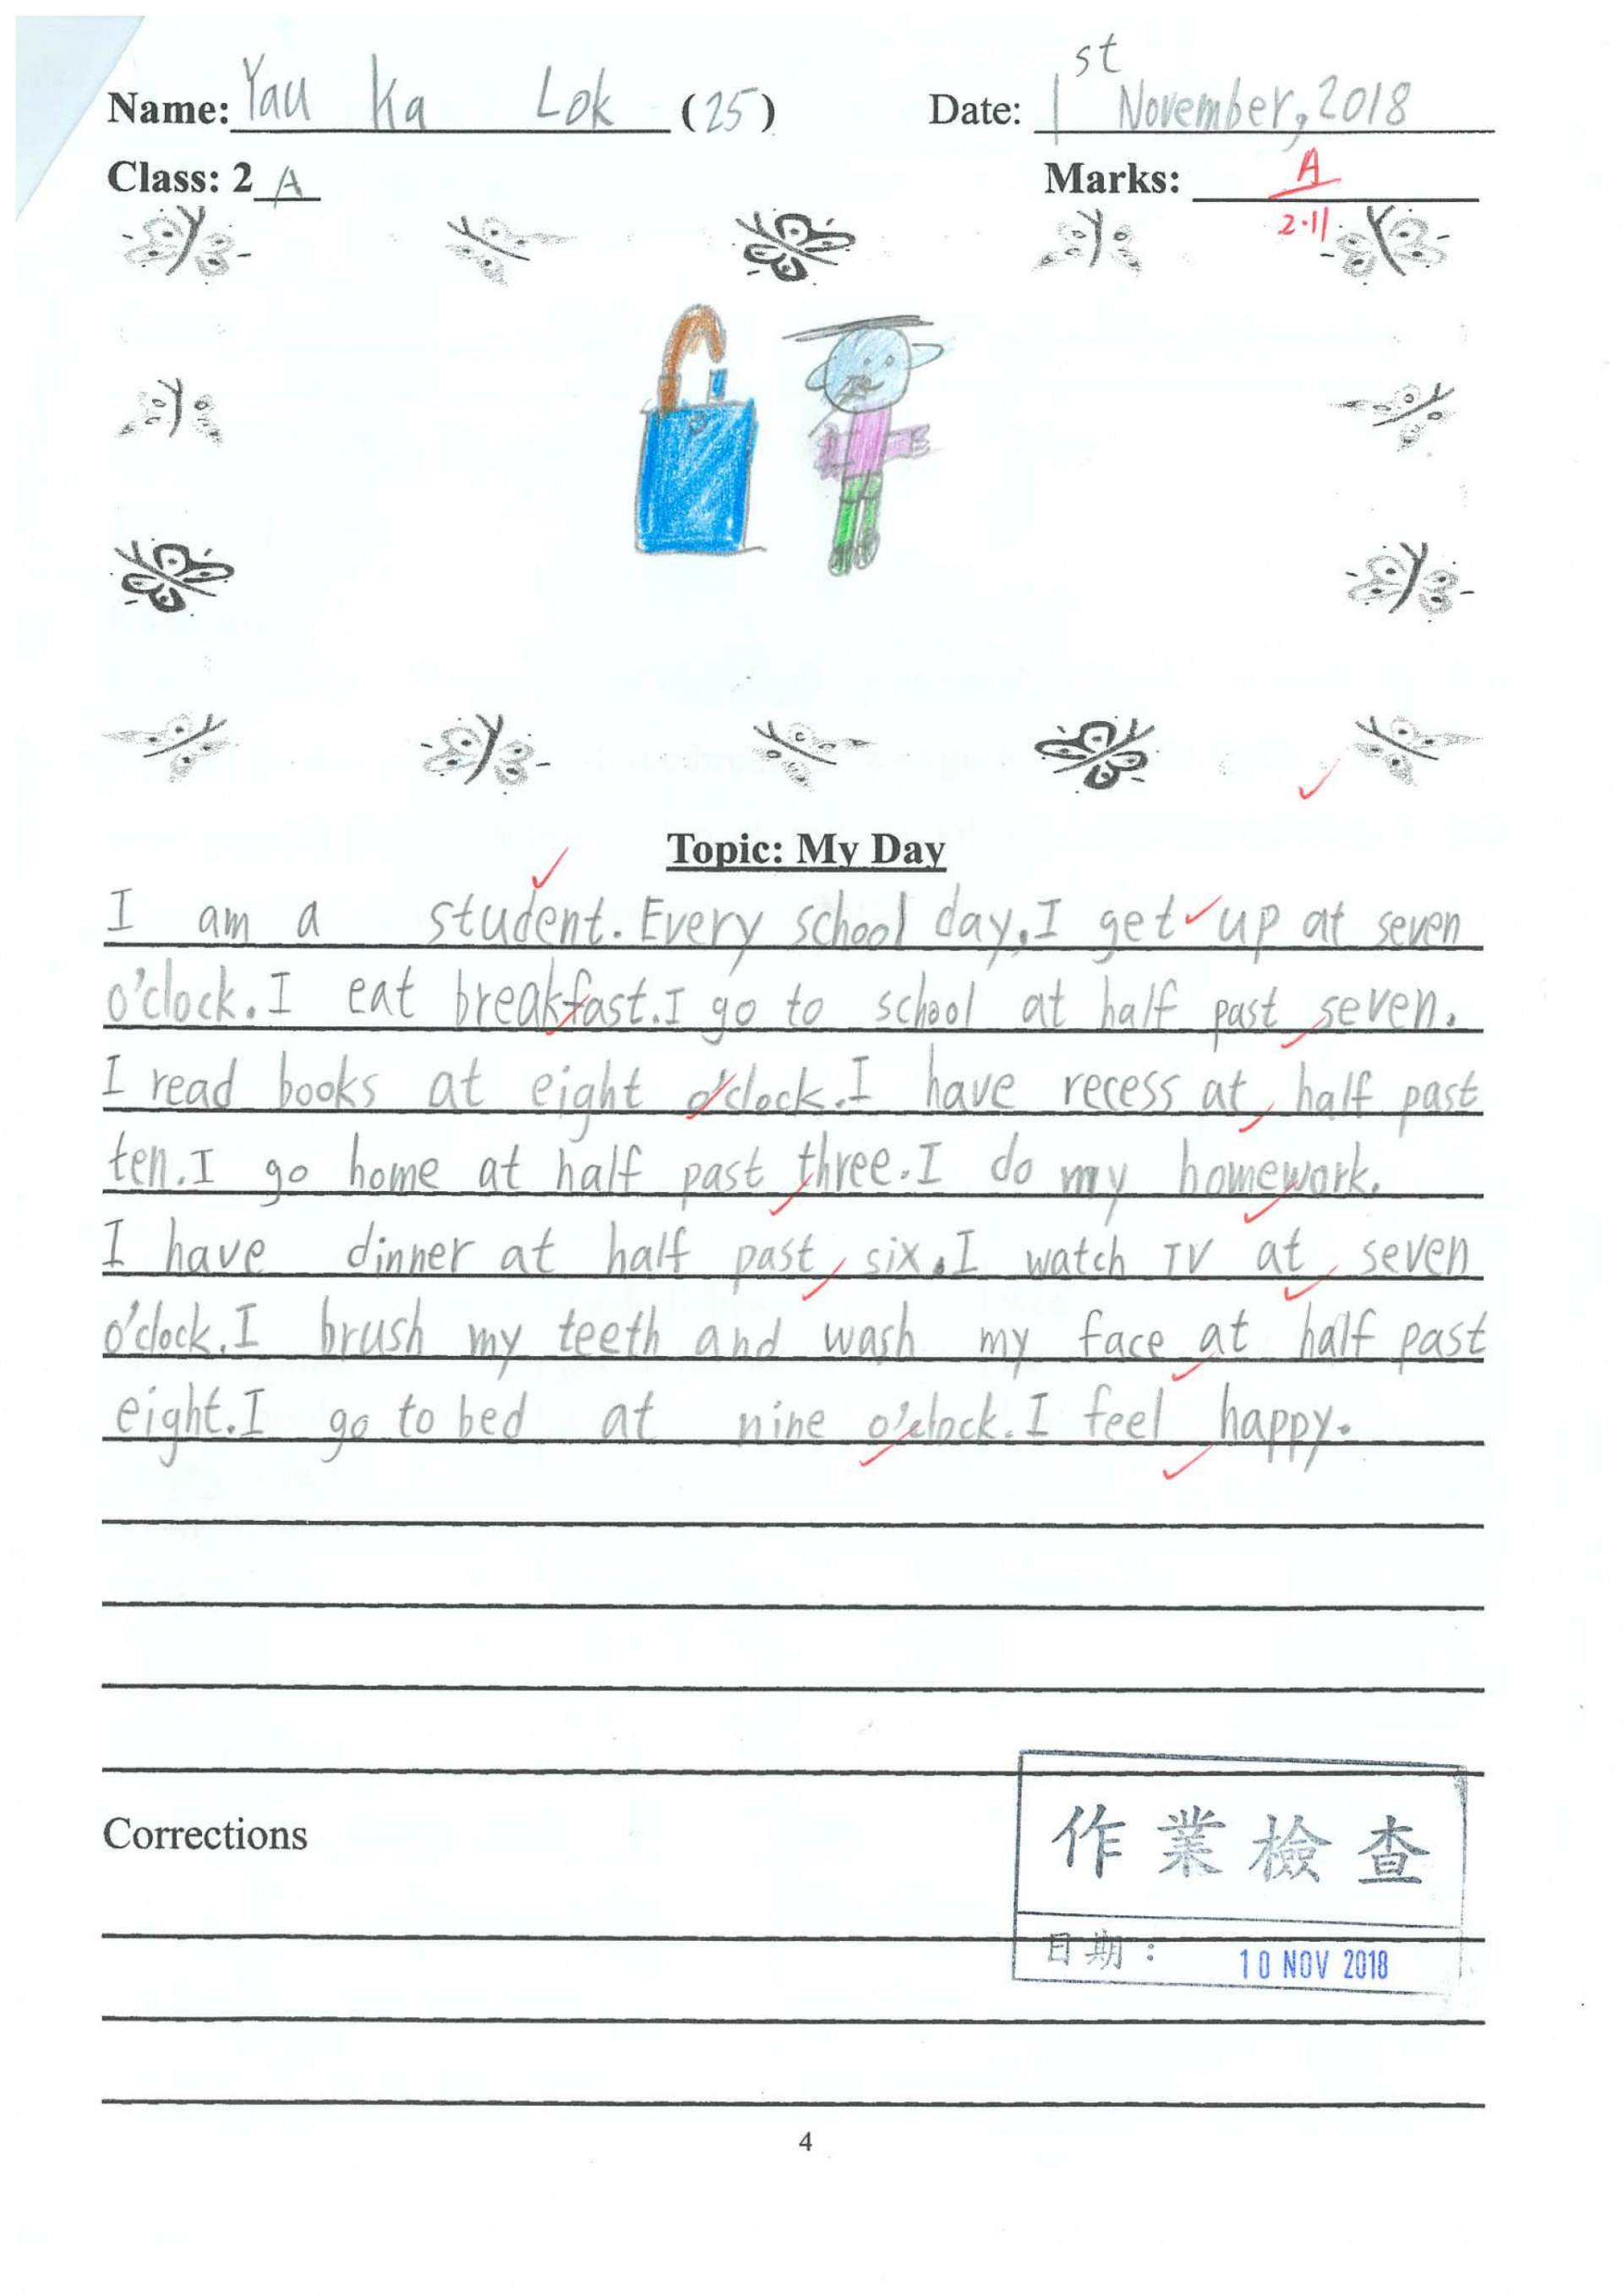 Name: Yau Ka Lok (25) Date: 1st November, 2018
Class: 2 A Marks: A
2.11
Topic: My Day
I am a student. Every school day, I get up at seven
o'clock. I eat breakfast. I go to school at half past seven.
I read books at eight o'clock. I have recess at half past
ten. I go home at half past three. I do my homework.
I have dinner at half past six. I watch TV at seven
o'clock. I brush my teeth and wash my face at half past
eight. I go to bed at nine o'clock. I feel happy.
Corrections
作業檢查
日期: 10 NOV 2018
4